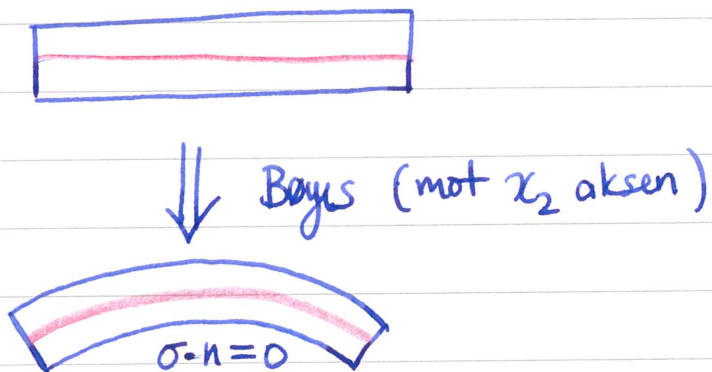 Bøyes (mot x₂ aksen)
σ·n=0